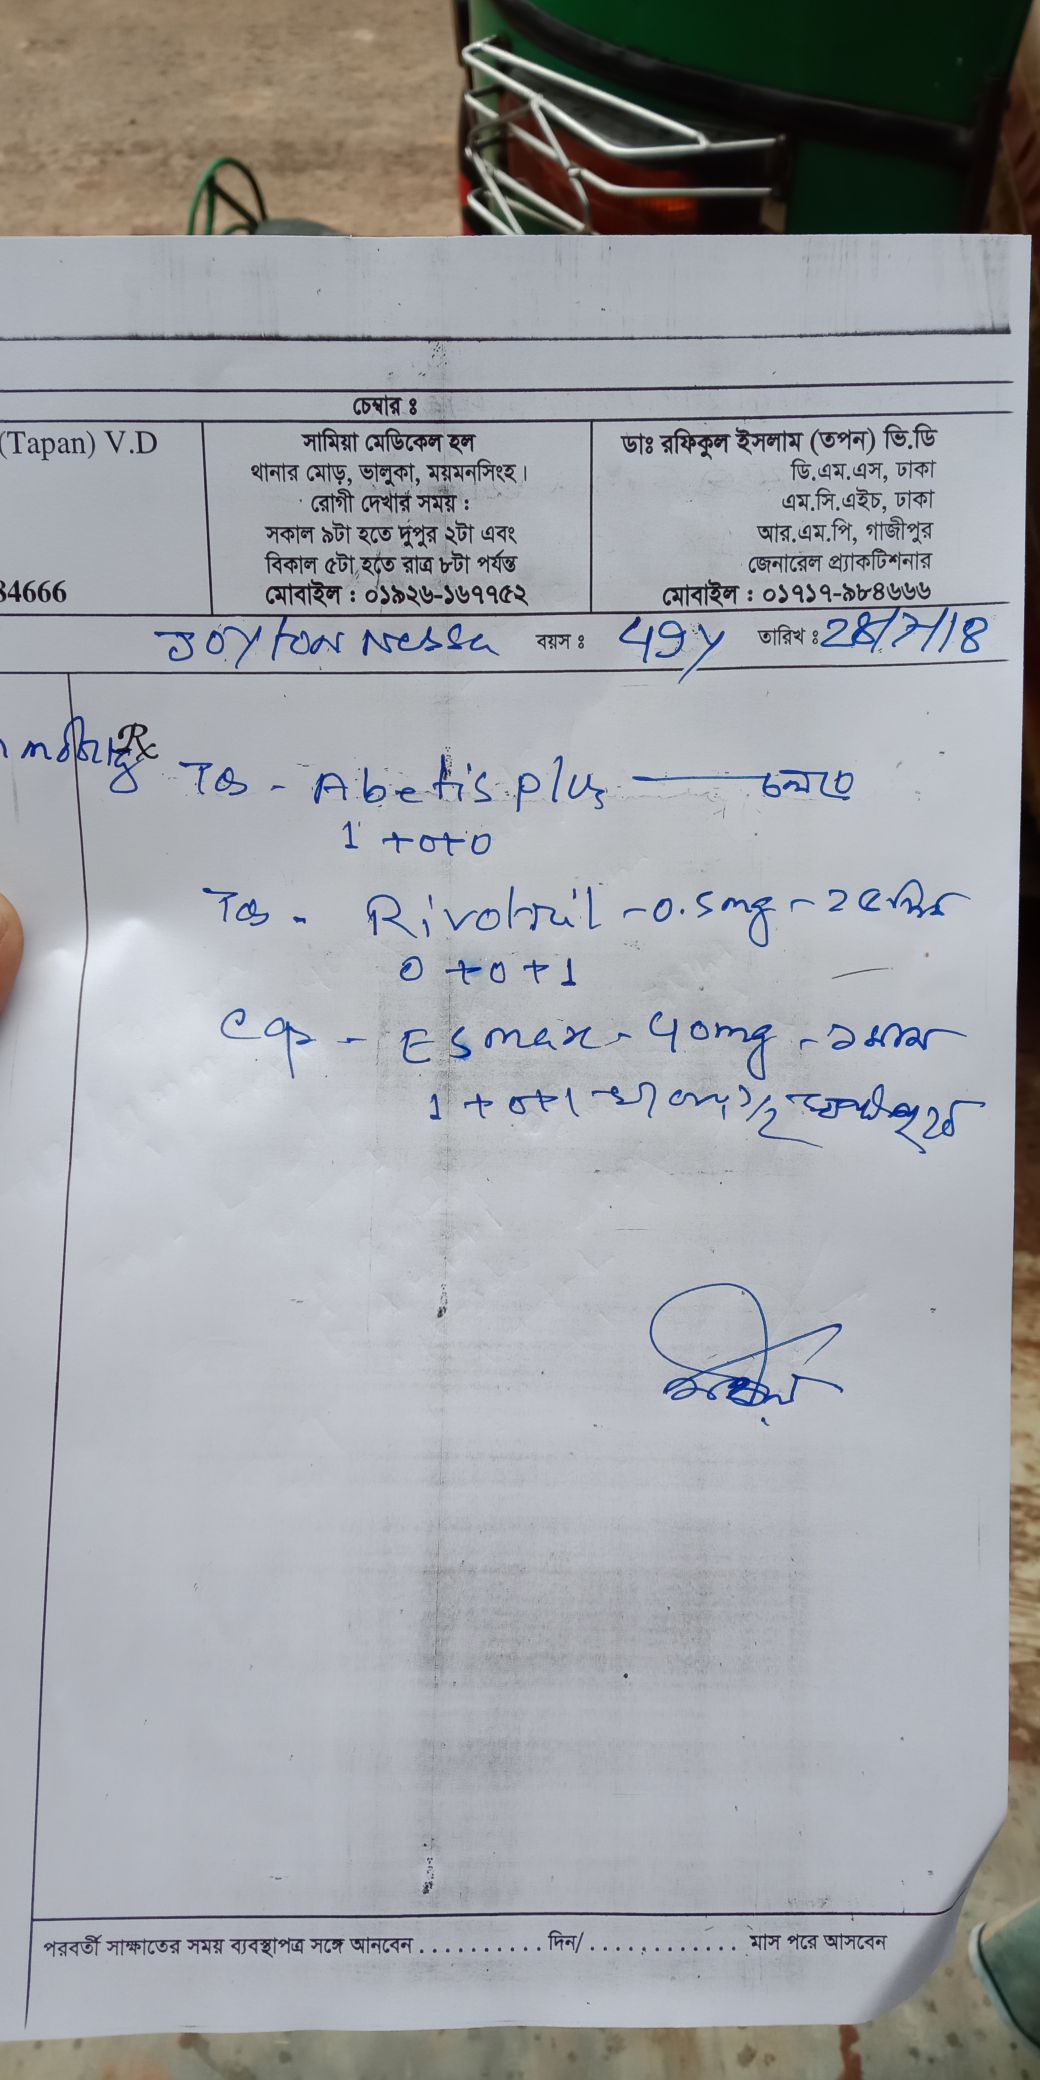 চেম্বার ঃ
(Tapan) V.D
34666
সামিয়া মেডিকেল হল
থানার মোড়, ভালুকা, ময়মনসিংহ।
রোগী দেখার সময় :
সকাল ৯টা হতে দুপুর ২টা এবং
বিকাল ৫টা হতে রাত্র ৮টা পর্যন্ত
মোবাইল : ০১৯২৬-১৬৭৭৫২
ডাঃ রফিকুল ইসলাম (তপন) ভি.ডি
ডি.এম.এস, ঢাকা
এম.সি.এইচ, ঢাকা
আর.এম.পি, গাজীপুর
জেনারেল প্র্যাকটিশনার
মোবাইল : ০১৭১৭-৯৮৪৬৬৬
Joyton Nessa বয়স ঃ 49y তারিখ ঃ 28/7/18
Rx
Tab - Abetis plus — চলবে
1 + 0 + 0
Tab - Rivotril - 0.5mg - 
0 + 0 + 1
Cap - Esmax - 40mg - ১ মাস
1 + 0 + 1
পরবর্তী সাক্ষাতের সময় ব্যবস্থাপত্র সঙ্গে আনবেন .......... দিন/............ মাস পরে আসবেন